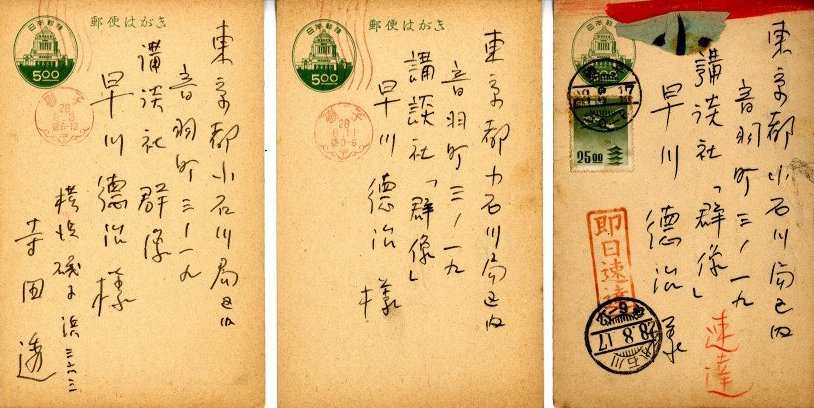 郵便はがき
日本郵便
5.00
東京都小石川局区内
音羽町三ノ一九
講談社 群像
早川德治様
横浜磯子浜
寺田透
郵便はがき
日本郵便
5.00
28
東京都小石川局区内
音羽町三ノ一九
講談社「群像」
早川德治様
日本郵便
25.00
東京都小石川局区内
音羽町三ノ一九
講談社「群像」
早川德治様
即日速達
速達
小石川
28.8.17